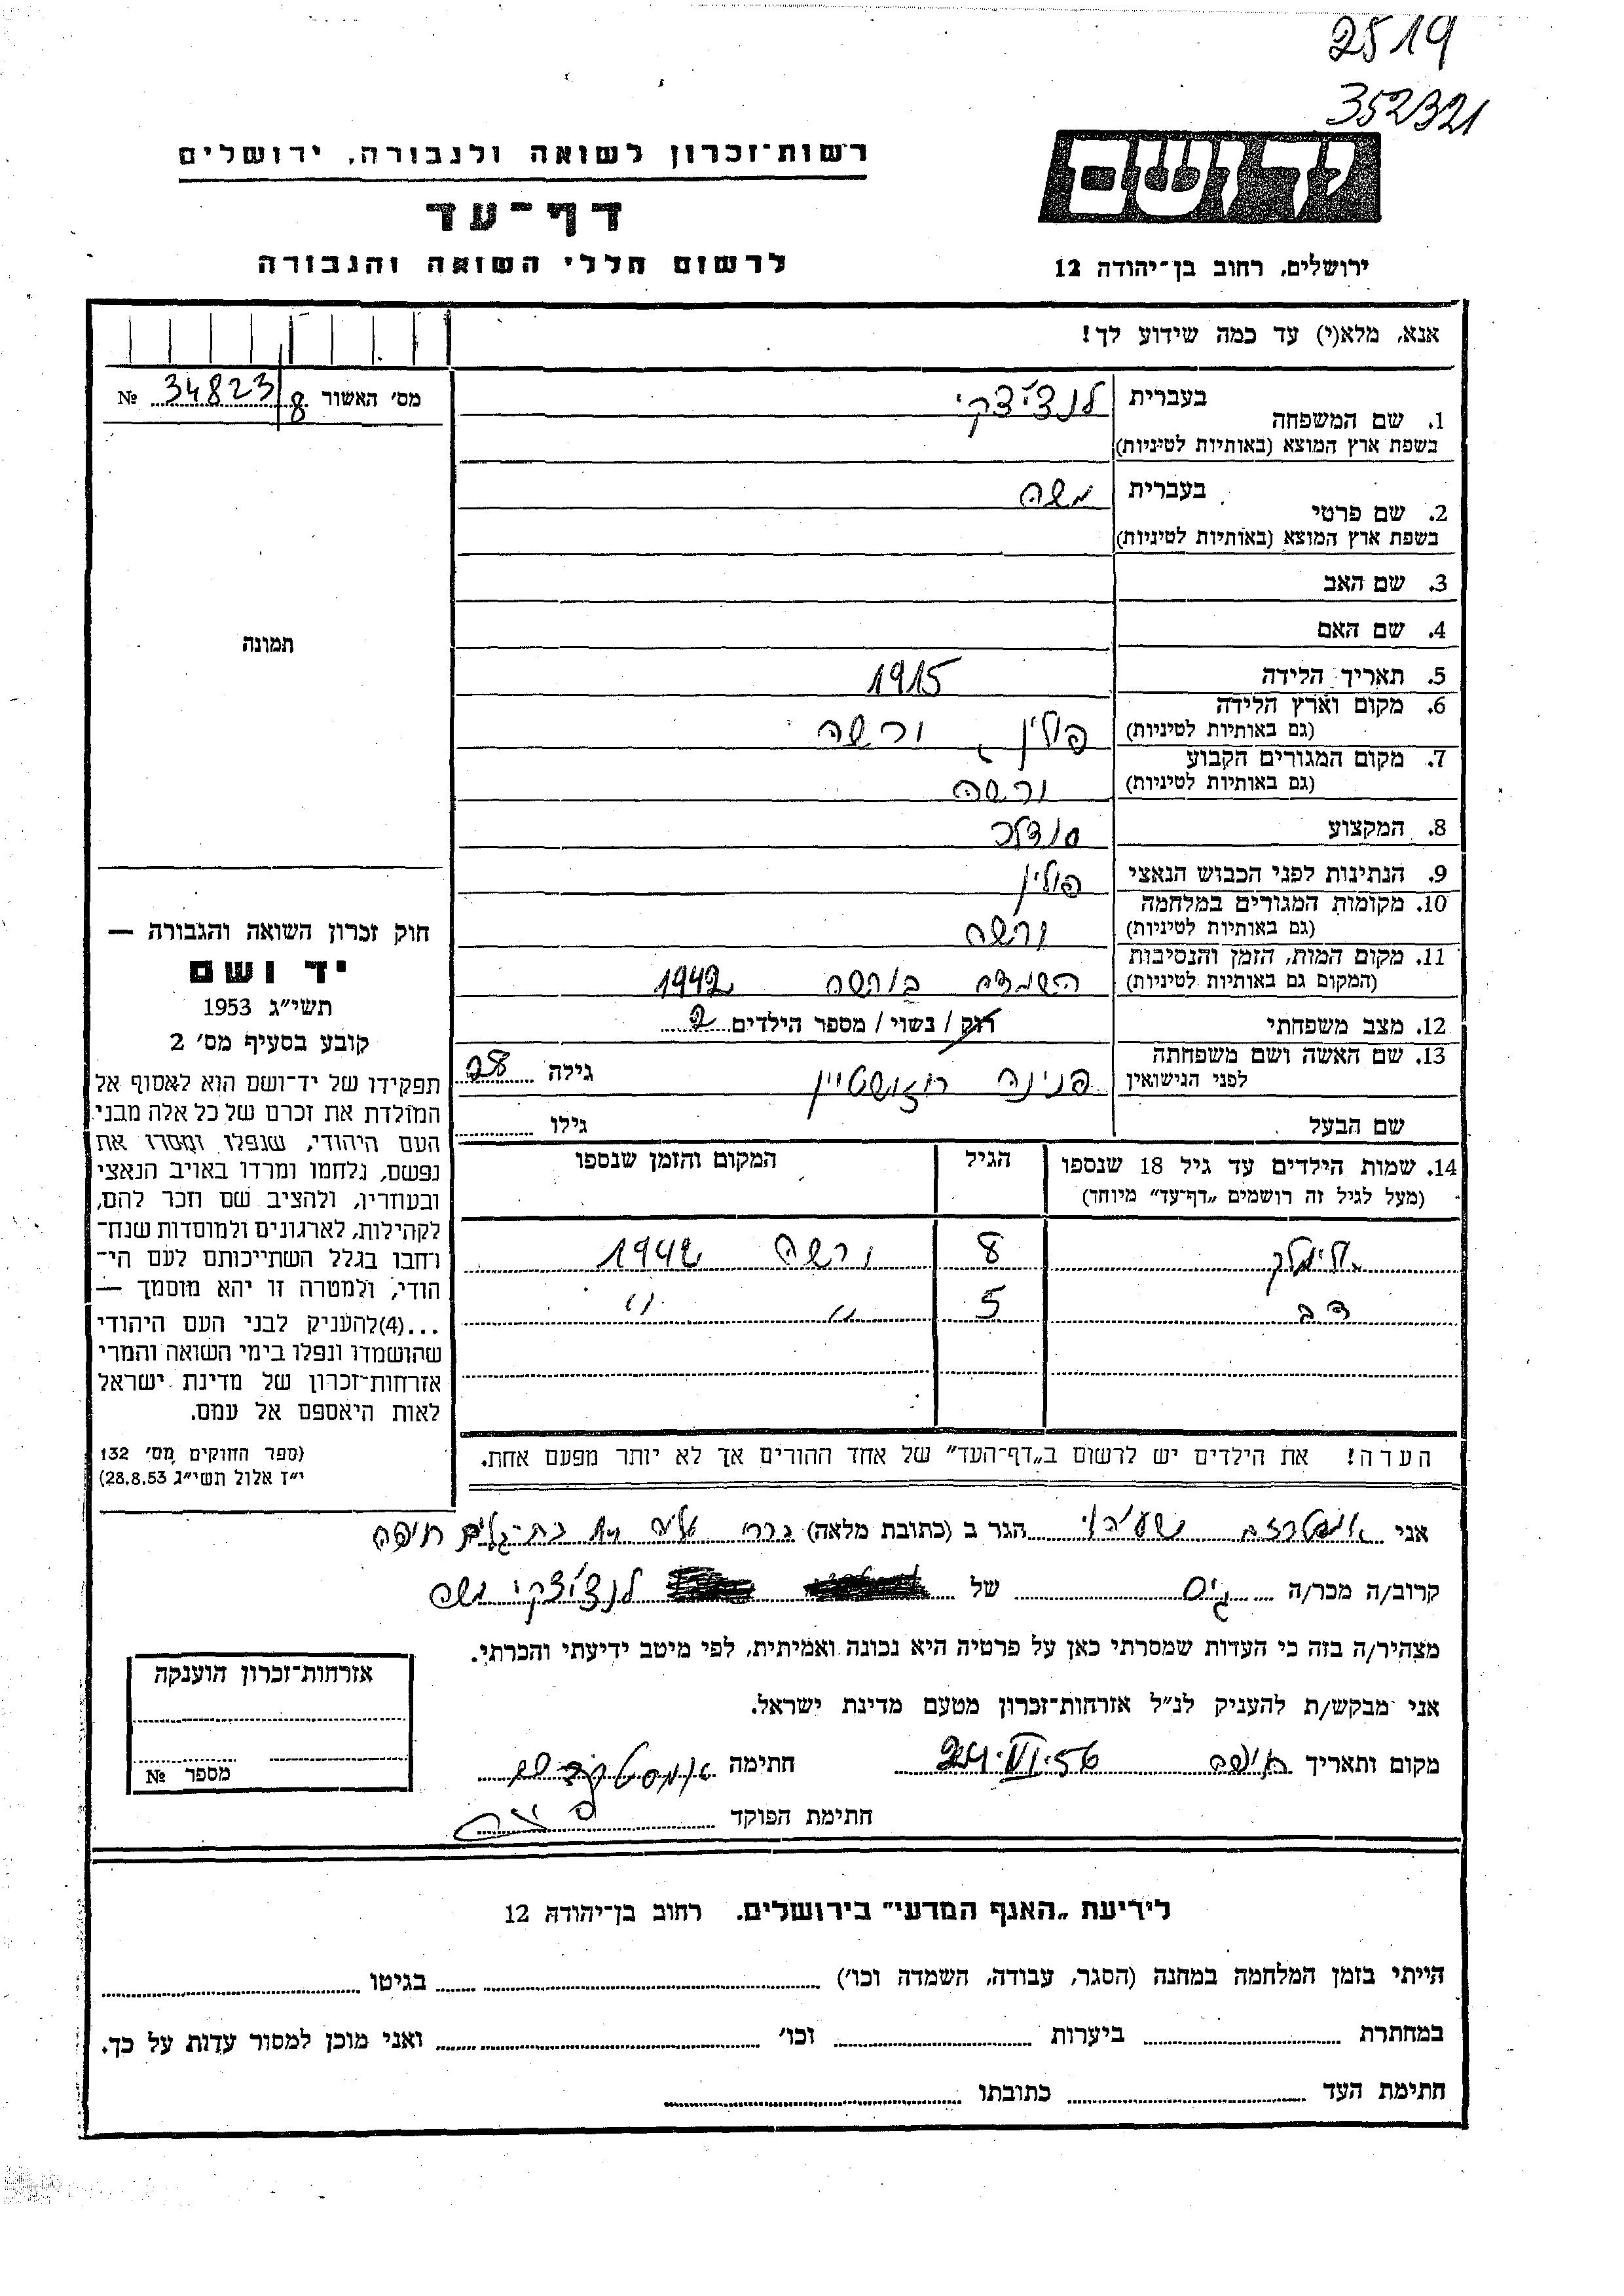 2519
352321
ידושם
רשות־זכרון לשואה ולגבורה, ירושלים
דף־עד
לרשום חללי השואה והגבורה
ירושלים, רחוב בן־יהודה 12
אנא, מלא(י) עד כמה שידוע לך!
מס׳ האשור 34823/8 №
1. שם המשפחה
בעברית לנצ׳יצקי
בשפת ארץ המוצא (באותיות לטיניות)
2. שם פרטי
בעברית משה
בשפת ארץ המוצא (באותיות לטיניות)
3. שם האב
4. שם האם
תמונה
5. תאריך הלידה 1915
6. מקום וארץ הלידה
(גם באותיות לטיניות) פולין, ורשה
7. מקום המגורים הקבוע
(גם באותיות לטיניות) ורשה
8. המקצוע סנדלר
9. הנתינות לפני הכבוש הנאצי פולין
10. מקומות המגורים במלחמה
(גם באותיות לטיניות) ורשה
11. מקום המות, הזמן והנסיבות
(המקום גם באותיות לטיניות) השמדה בורשה 1942
12. מצב משפחתי רוק / נשוי / מספר הילדים 2
13. שם האשה ושם משפחתה
לפני הנישואין פנינה רוזנשטיין גילה 28
שם הבעל גילו
14. שמות הילדים עד גיל 18 שנספו
(מעל לגיל זה רושמים „דף־עד״ מיוחד)
הגיל
המקום והזמן שנספו
אלימלך 8 ורשה 1942
דב 5 " "
הערה! את הילדים יש לרשום ב„דף־העד״ של אחד ההורים אך לא יותר מפעם אחת.
חוק זכרון השואה והגבורה —
יד ושם
תשי״ג 1953
קובע בסעיף מס׳ 2
תפקידו של יד־ושם הוא לאסוף אל
המולדת את זכרם של כל אלה מבני
העם היהודי, שנפלו ומסרו את
נפשם, נלחמו ומרדו באויב הנאצי
ובעוזריו, ולהציב שם וזכר להם,
לקהילות, לארגונים ולמוסדות שנח־
רחבו בגלל השתייכותם לעם הי־
הודי, ולמטרה זו יהא מוסמך —
...(4)להעניק לבני העם היהודי
שהושמדו ונפלו בימי השואה והמרי
אזרחות־זכרון של מדינת ישראל
לאות היאספם אל עמם.
(ספר החוקים מס׳ 132
י״ז אלול תשי״ג 28.8.53)
אני ישעיהו הגר ב (כתובת מלאה) בת־גלים חיפה
קרוב/ה מכר/ה גיס של לנצ׳יצקי משה
מצהיר/ה בזה כי העדות שמסרתי כאן על פרטיה היא נכונה ואמיתית, לפי מיטב ידיעתי והכרתי.
אני מבקש/ת להעניק לנ״ל אזרחות־זכרון מטעם מדינת ישראל.
מקום ותאריך חיפה 24.VI.56 חתימה
חתימת הפוקד
אזרחות־זכרון הוענקה
מספר №
לידיעת „האגף המדעי״ בירושלים, רחוב בן־יהודה 12
הייתי בזמן המלחמה במחנה (הסגר, עבודה, השמדה וכו׳) בגיטו
במחתרת ביערות וכו׳ ואני מוכן למסור עדות על כך.
חתימת העד כתובתו